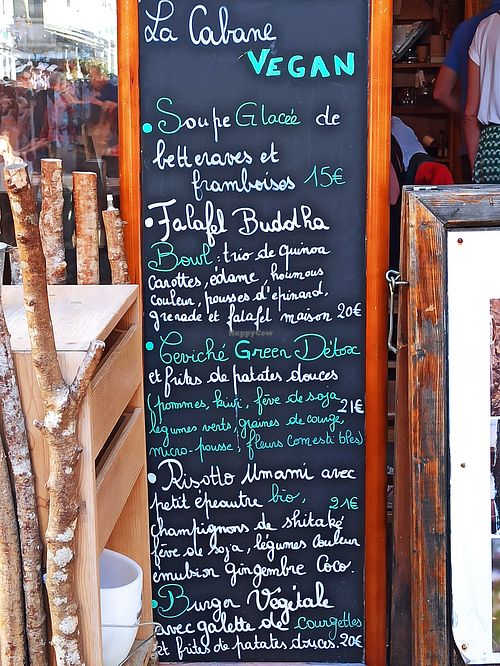 La Cabane
VEGAN
Soupe Glacée de
betteraves et
framboises 15€
Falafel Buddha
Bowl : trio de quinoa
carottes, édame, houmous
couleur, pousses d'épinard,
grenade et falafel maison 20€
Ceviché Green Détox
et frites de patates douces
(pommes, kiwi, fève de soja,
21€
légumes verts, graines de courge,
micro-pousse, fleurs comestibles)
Risotto Umami avec
petit épeautre bio,
21€
champignons de shitaké
fève de soja, légumes couleur
émulsion gingembre Coco.
Burger Végétale
avec galette de courgettes
et frites de patates douces. 20€
HappyCow